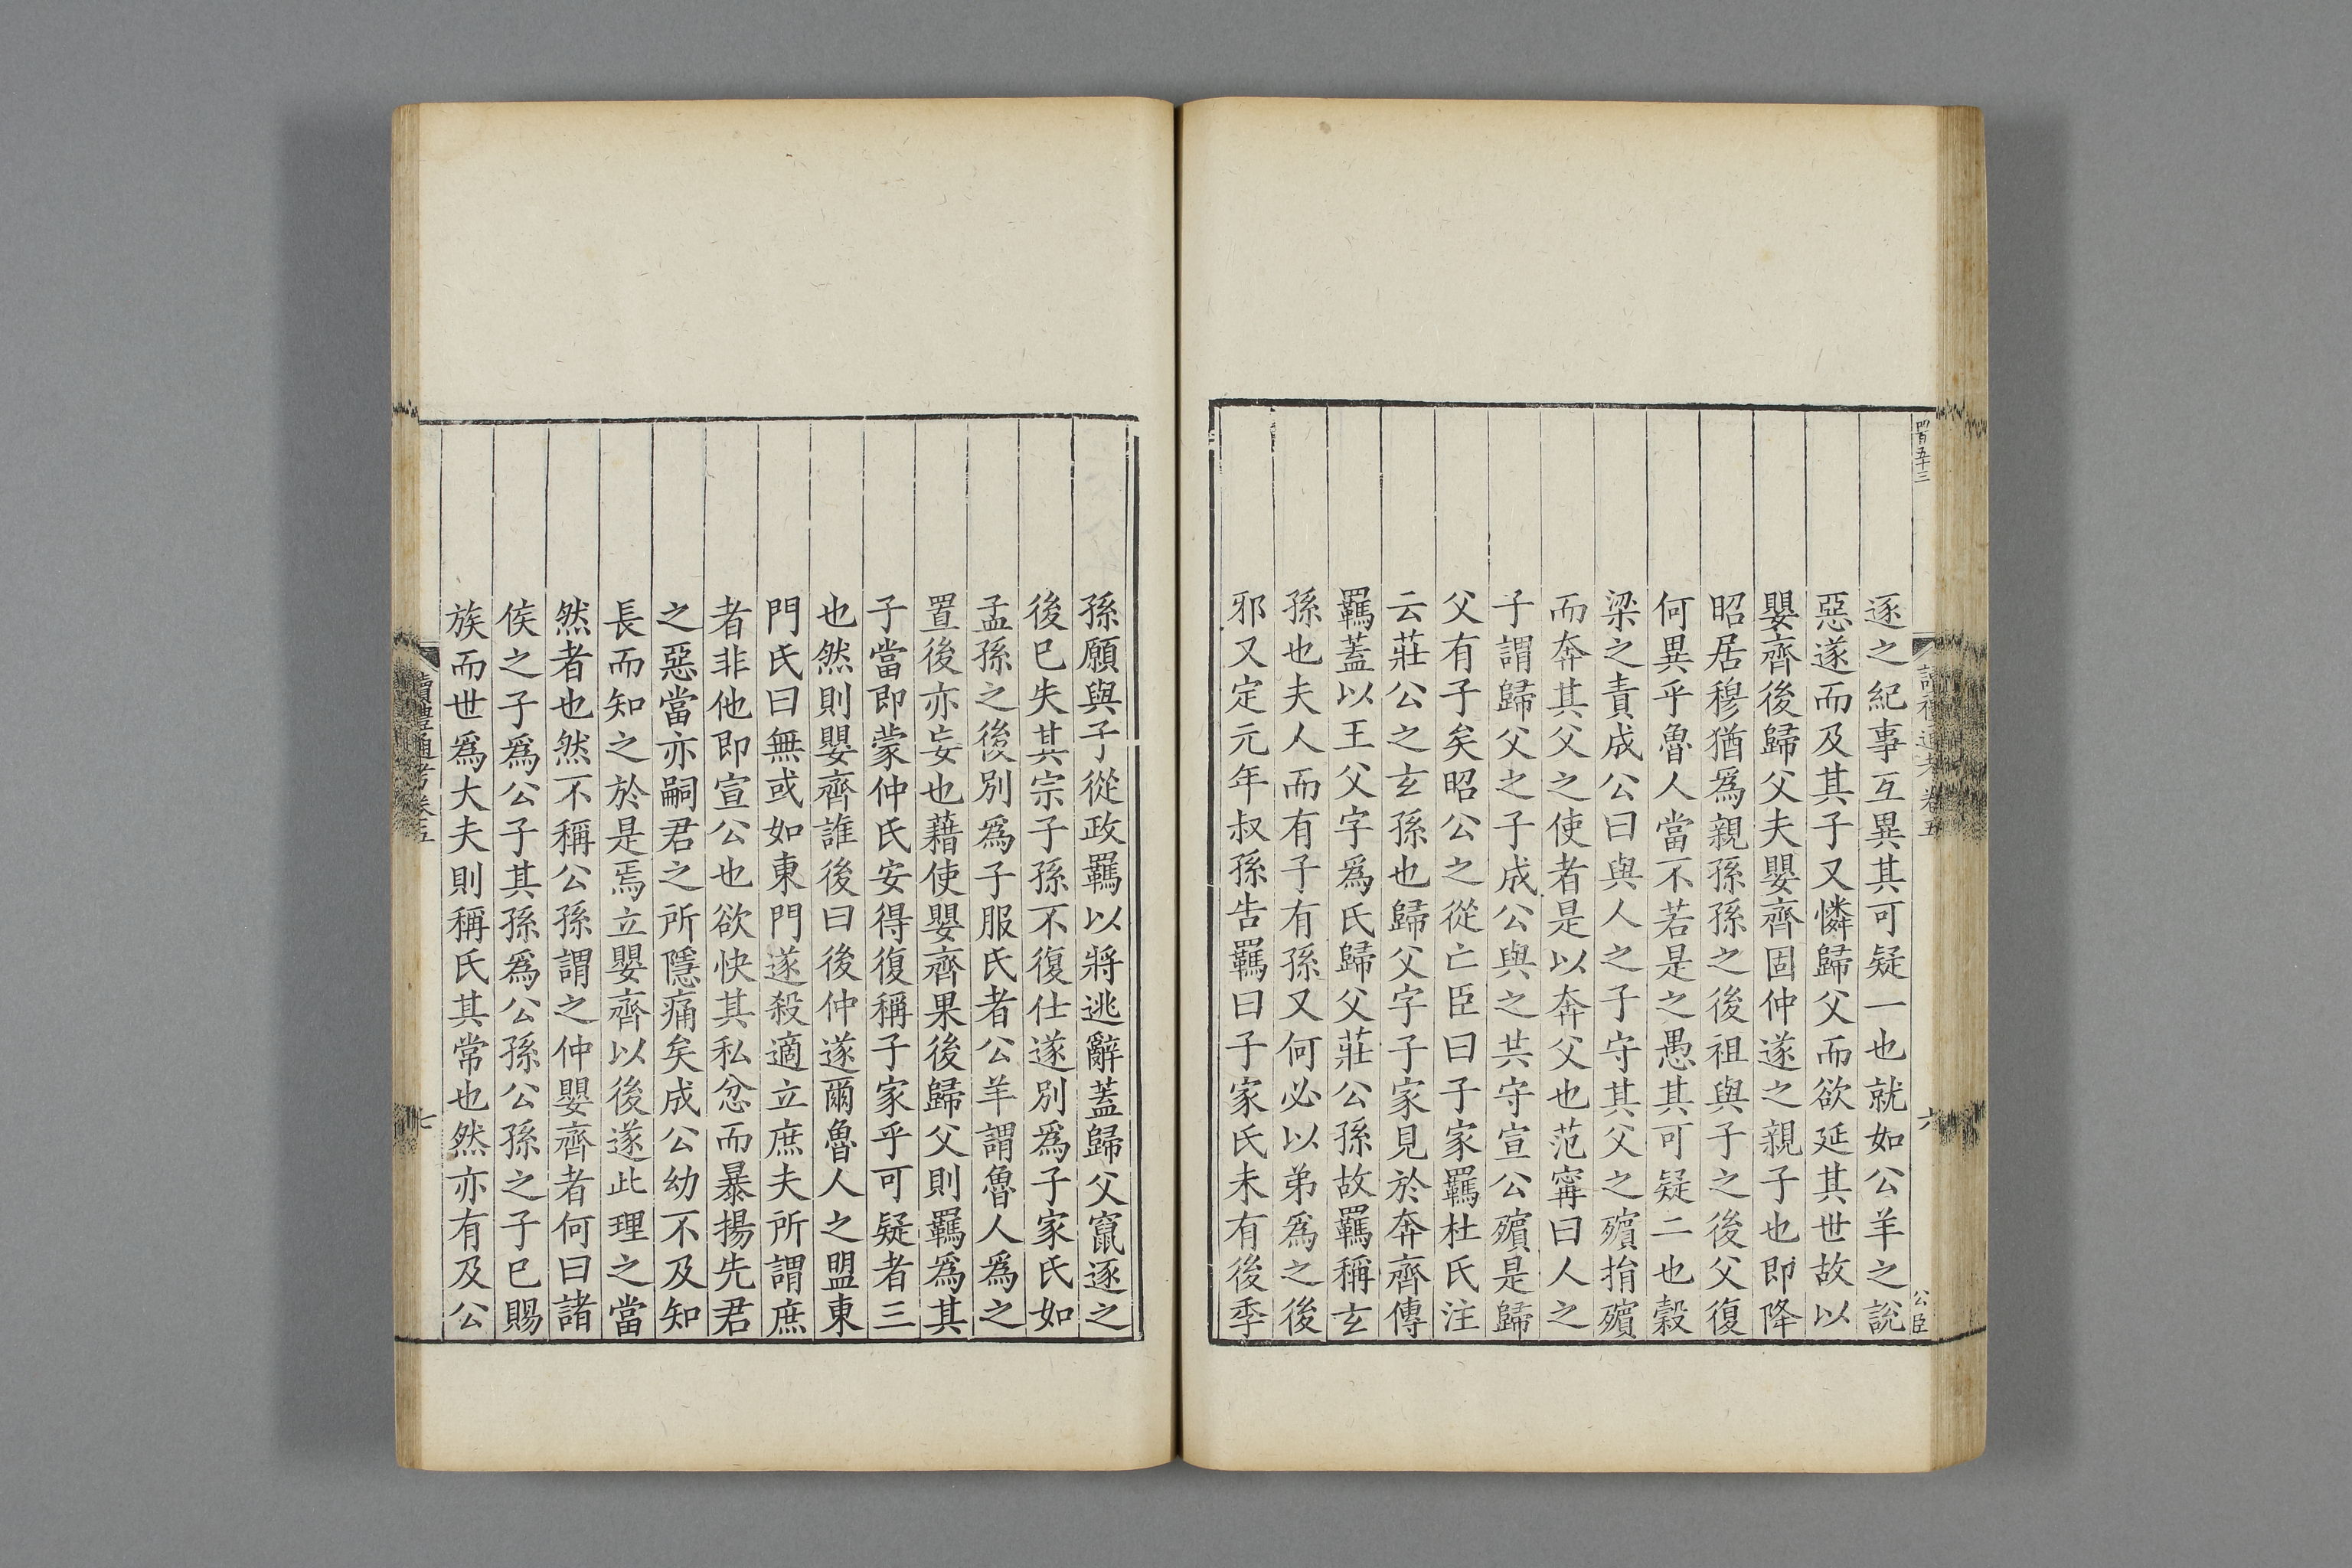 四百五十三
讀禮通考卷五
六
公臣
逐之紀事互異其可疑一也就如公羊之說
惡遂而及其子又憐歸父而欲延其世故以
嬰齊後歸父夫嬰齊固仲遂之親子也即降
昭居穆猶爲親孫孫之後祖與子之後父復
何異乎魯人當不若是之愚其可疑二也穀
梁之責成公曰與人之子守其父之殯捐殯
而奔其父之使者是以奔父也范甯曰人之
子謂歸父之子成公與之共守宣公殯是歸
父有子矣昭公之從亡臣曰子家羈杜氏注
云莊公之玄孫也歸父字子家見於奔齊傳
羈蓋以王父字爲氏歸父莊公孫故羈稱玄
孫也夫人而有子有孫又何必以弟爲之後
邪又定元年叔孫告羈曰子家氏未有後季
孫願與子從政羈以將逃辭蓋歸父竄逐之
後已失其宗子孫不復仕遂別爲子家氏如
孟孫之後別爲子服氏者公羊謂魯人爲之
置後亦妄也藉使嬰齊果後歸父則羈爲其
子當即蒙仲氏安得復稱子家乎可疑者三
也然則嬰齊誰後曰後仲遂爾魯人之盟東
門氏曰無或如東門遂殺適立庶夫所謂庶
者非他即宣公也欲快其私忿而暴揚先君
之惡當亦嗣君之所隱痛矣成公幼不及知
長而知之於是焉立嬰齊以後遂此理之當
然者也然不稱公孫謂之仲嬰齊者何曰諸
侯之子爲公子其孫爲公孫公孫之子已賜
族而世爲大夫則稱氏其常也然亦有及公
讀禮通考卷五
七